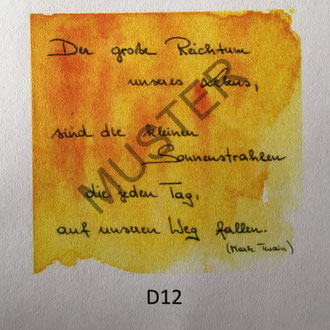 Der große Reichtum
unseres Lebens,
sind die kleinen
Sonnenstrahlen
die jeden Tag,
auf unseren Weg fallen.
(Mark Twain)
MUSTER
D12